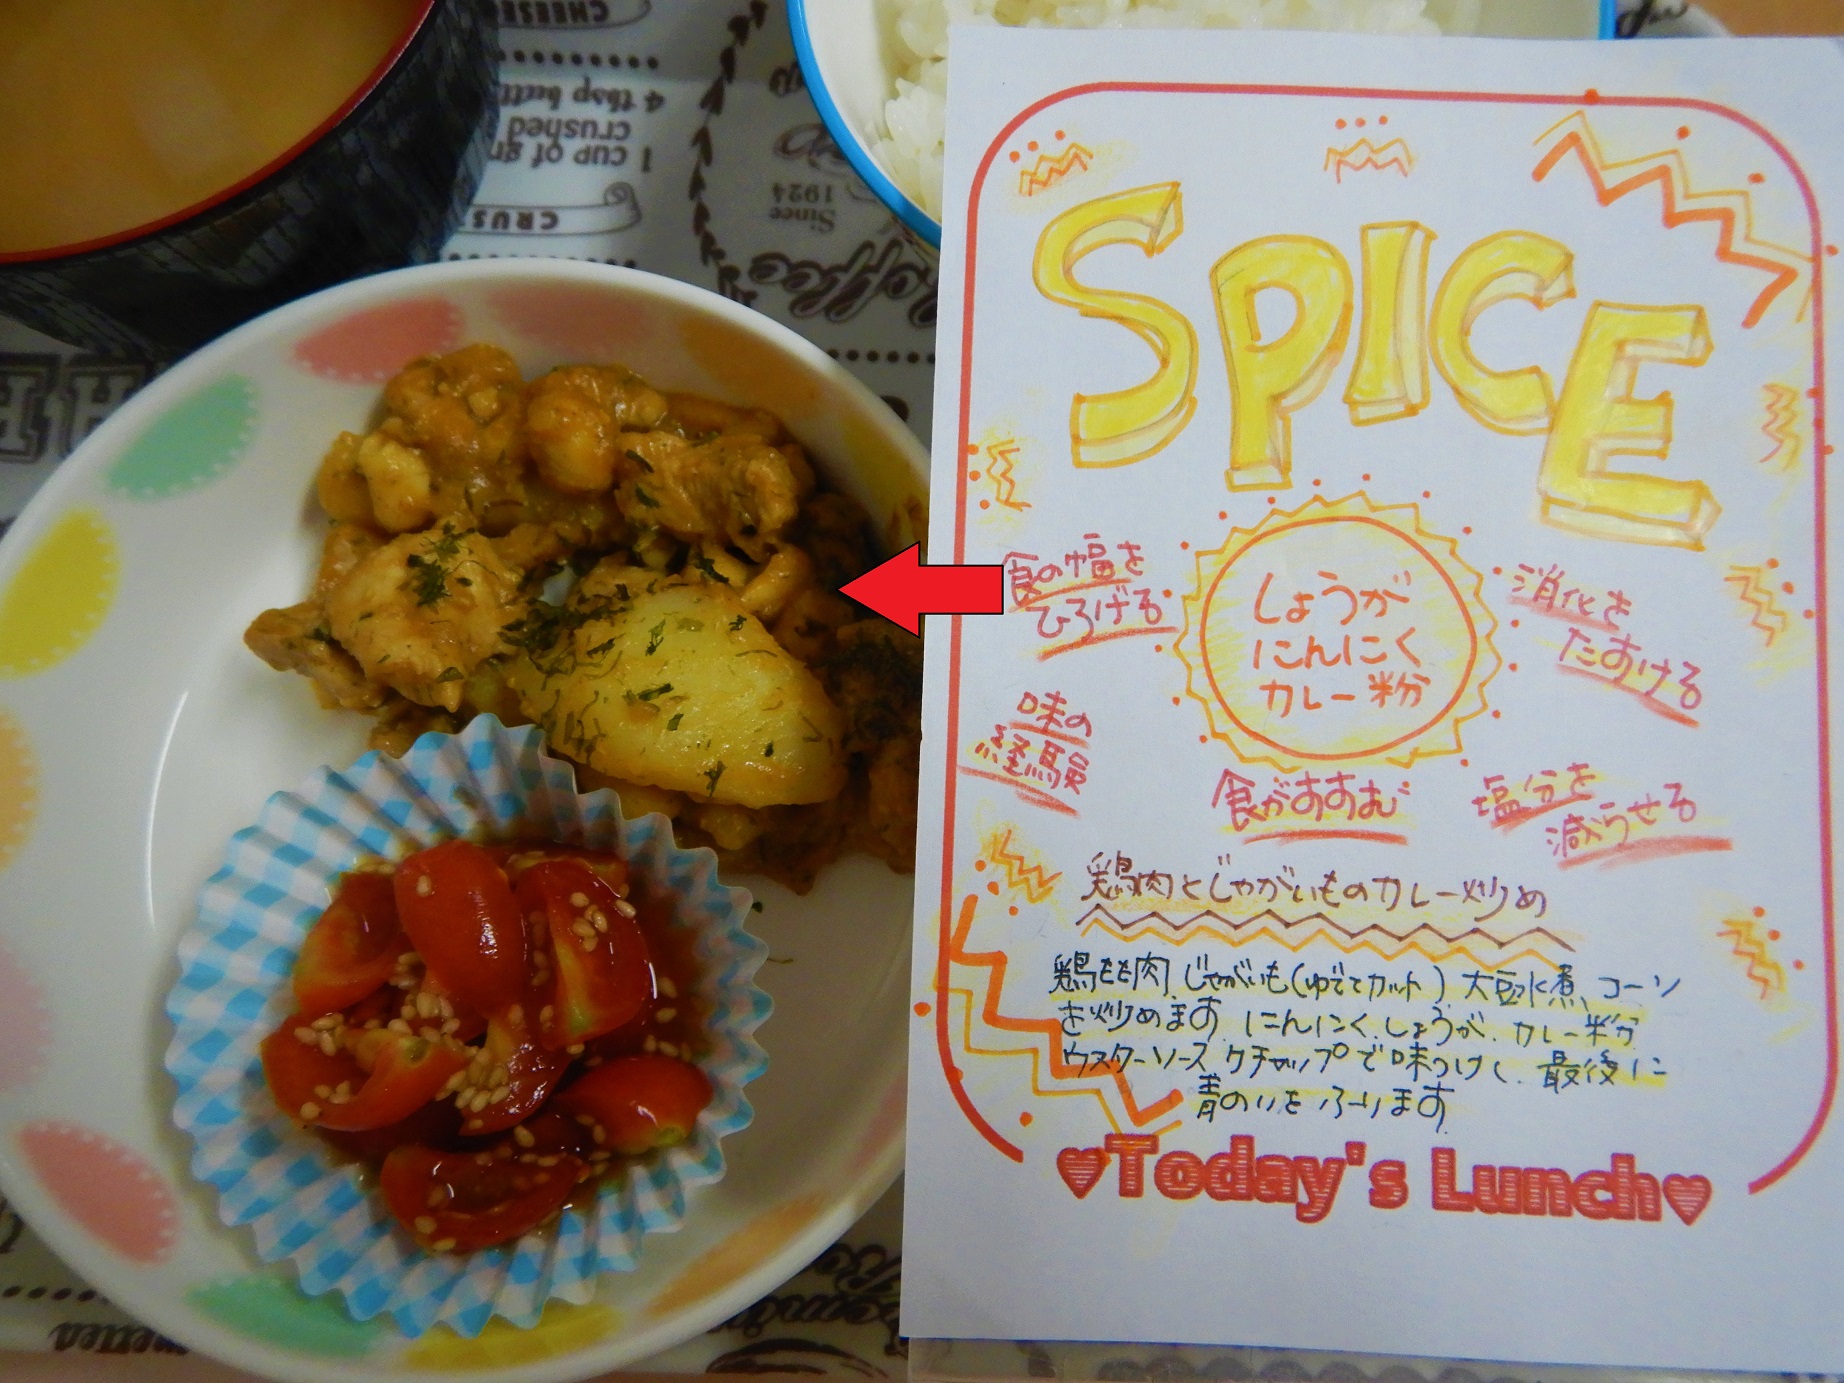 CHEESE
4 tbsp butt
crushed
1 cup of gr
CRUS
Since
1924
Coffee
SPICE
しょうが
にんにく
カレー粉
食の幅を
ひろげる
消化を
たすける
味の
経験
食がすすむ
塩分を
減らせる
鶏肉とじゃがいものカレー炒め
鶏もも肉、じゃがいも(ゆでてカット)、大豆水煮、コーン
を炒めます。にんにく、しょうが、カレー粉
ウスターソース、ケチャップで味つけし、最後に
青のりをふります
♥Today's Lunch♥